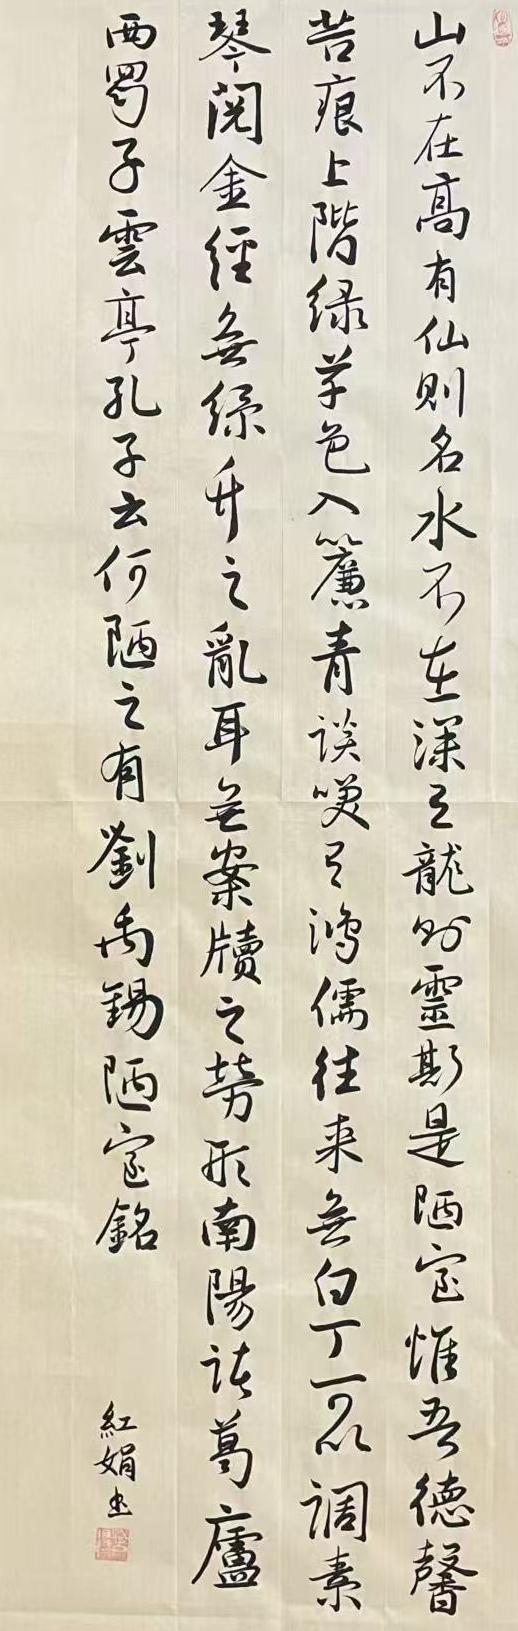 山不在高有仙則名水不在深有龍則靈斯是陋室惟吾德馨
苔痕上階緑草色入簾青談咲有鴻儒往来無白丁可以調素
琴閲金經無絲竹之亂耳無案牘之勞形南陽諸葛廬
西蜀子雲亭孔子云何陋之有劉禹錫陋室銘
紅娟書